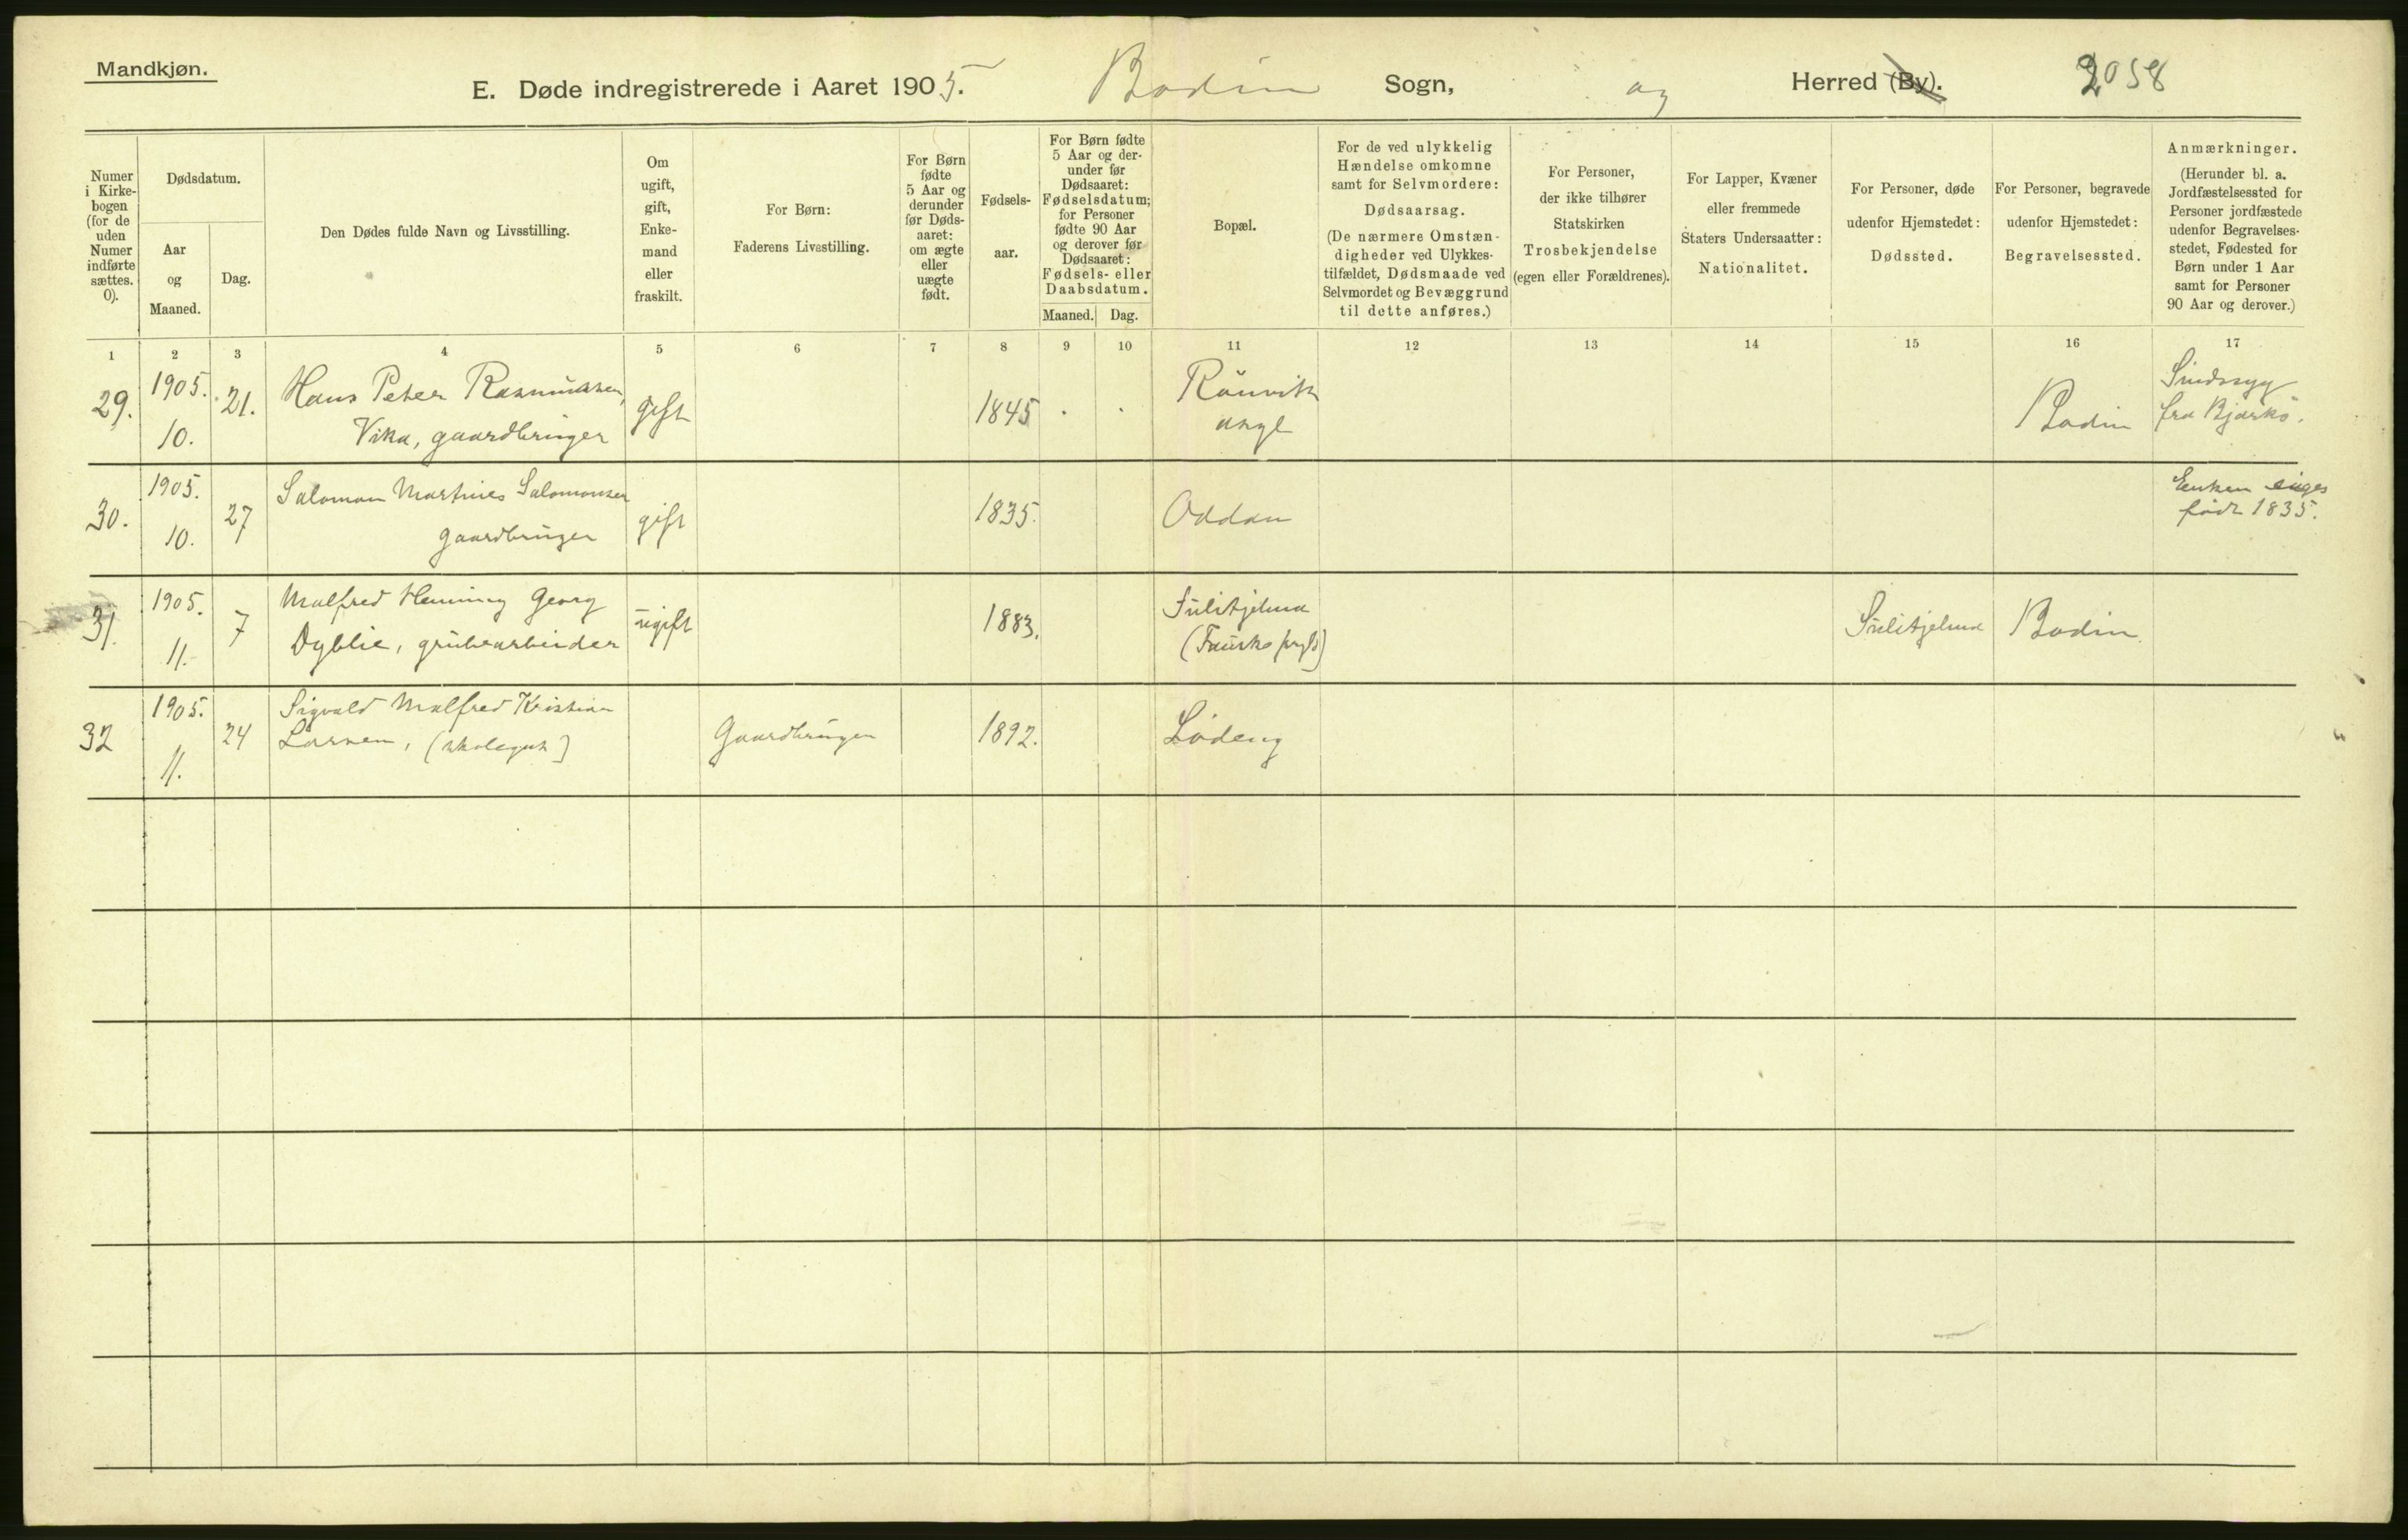 Mandkjøn.
E. Døde indregistrerede i Aaret 1905. Bodin Sogn, og Herred (By). 2058
Numer i Kirkebogen (for de uden Numer indførte sættes. 0).
Dødsdatum.
Aar og Maaned.
Dag.
Den Dødes fulde Navn og Livsstilling.
Om ugift, gift, Enkemand eller fraskilt.
For Børn: Faderens Livsstilling.
For Børn fødte 5 Aar og derunder før Dødsaaret: om ægte eller uægte født.
Fødselsaar.
For Børn fødte 5 Aar og derunder før Dødsaaret: Fødselsdatum; for Personer fødte 90 Aar og derover før Dødsaaret: Fødsels- eller Daabsdatum.
Maaned. Dag.
Bopæl.
For de ved ulykkelig Hændelse omkomne samt for Selvmordere: Dødsaarsag. (De nærmere Omstændigheder ved Ulykkestilfældet, Dødsmaade ved Selvmordet og Bevæggrund til dette anføres.)
For Personer, der ikke tilhører Statskirken Trosbekjendelse (egen eller Forældrenes).
For Lapper, Kvæner eller fremmede Staters Undersaatter: Nationalitet.
For Personer, døde udenfor Hjemstedet: Dødssted.
For Personer, begravede udenfor Hjemstedet: Begravelsessted.
Anmærkninger. (Herunder bl. a. Jordfæstelsessted for Personer jordfæstede udenfor Begravelsesstedet, Fødested for Børn under 1 Aar samt for Personer 90 Aar og derover.)
1 2 3 4 5 6 7 8 9 10 11 12 13 14 15 16 17
29. 1905. 10. 21. Hans Peter Rasmussen, Vika, gaardbruger gift 1845 Rönvik asyl Bodin Sindssyg fra Bjarkö.
30. 1905. 10. 27 Salomon Martinus Salomonsen gaardbruger gift 1835. Oddan Enken født 1835.
31. 1905. 11. 7 Malfred Henning Georg Dyblie, grubearbeider ugift 1883. Sulitjelma (Fauske prgld) Sulitjelma Bodin.
32 1905. 11. 24 Sigvald Malfred Kristian Larsen, (skolegut) Gaardbruger 1892. Löding